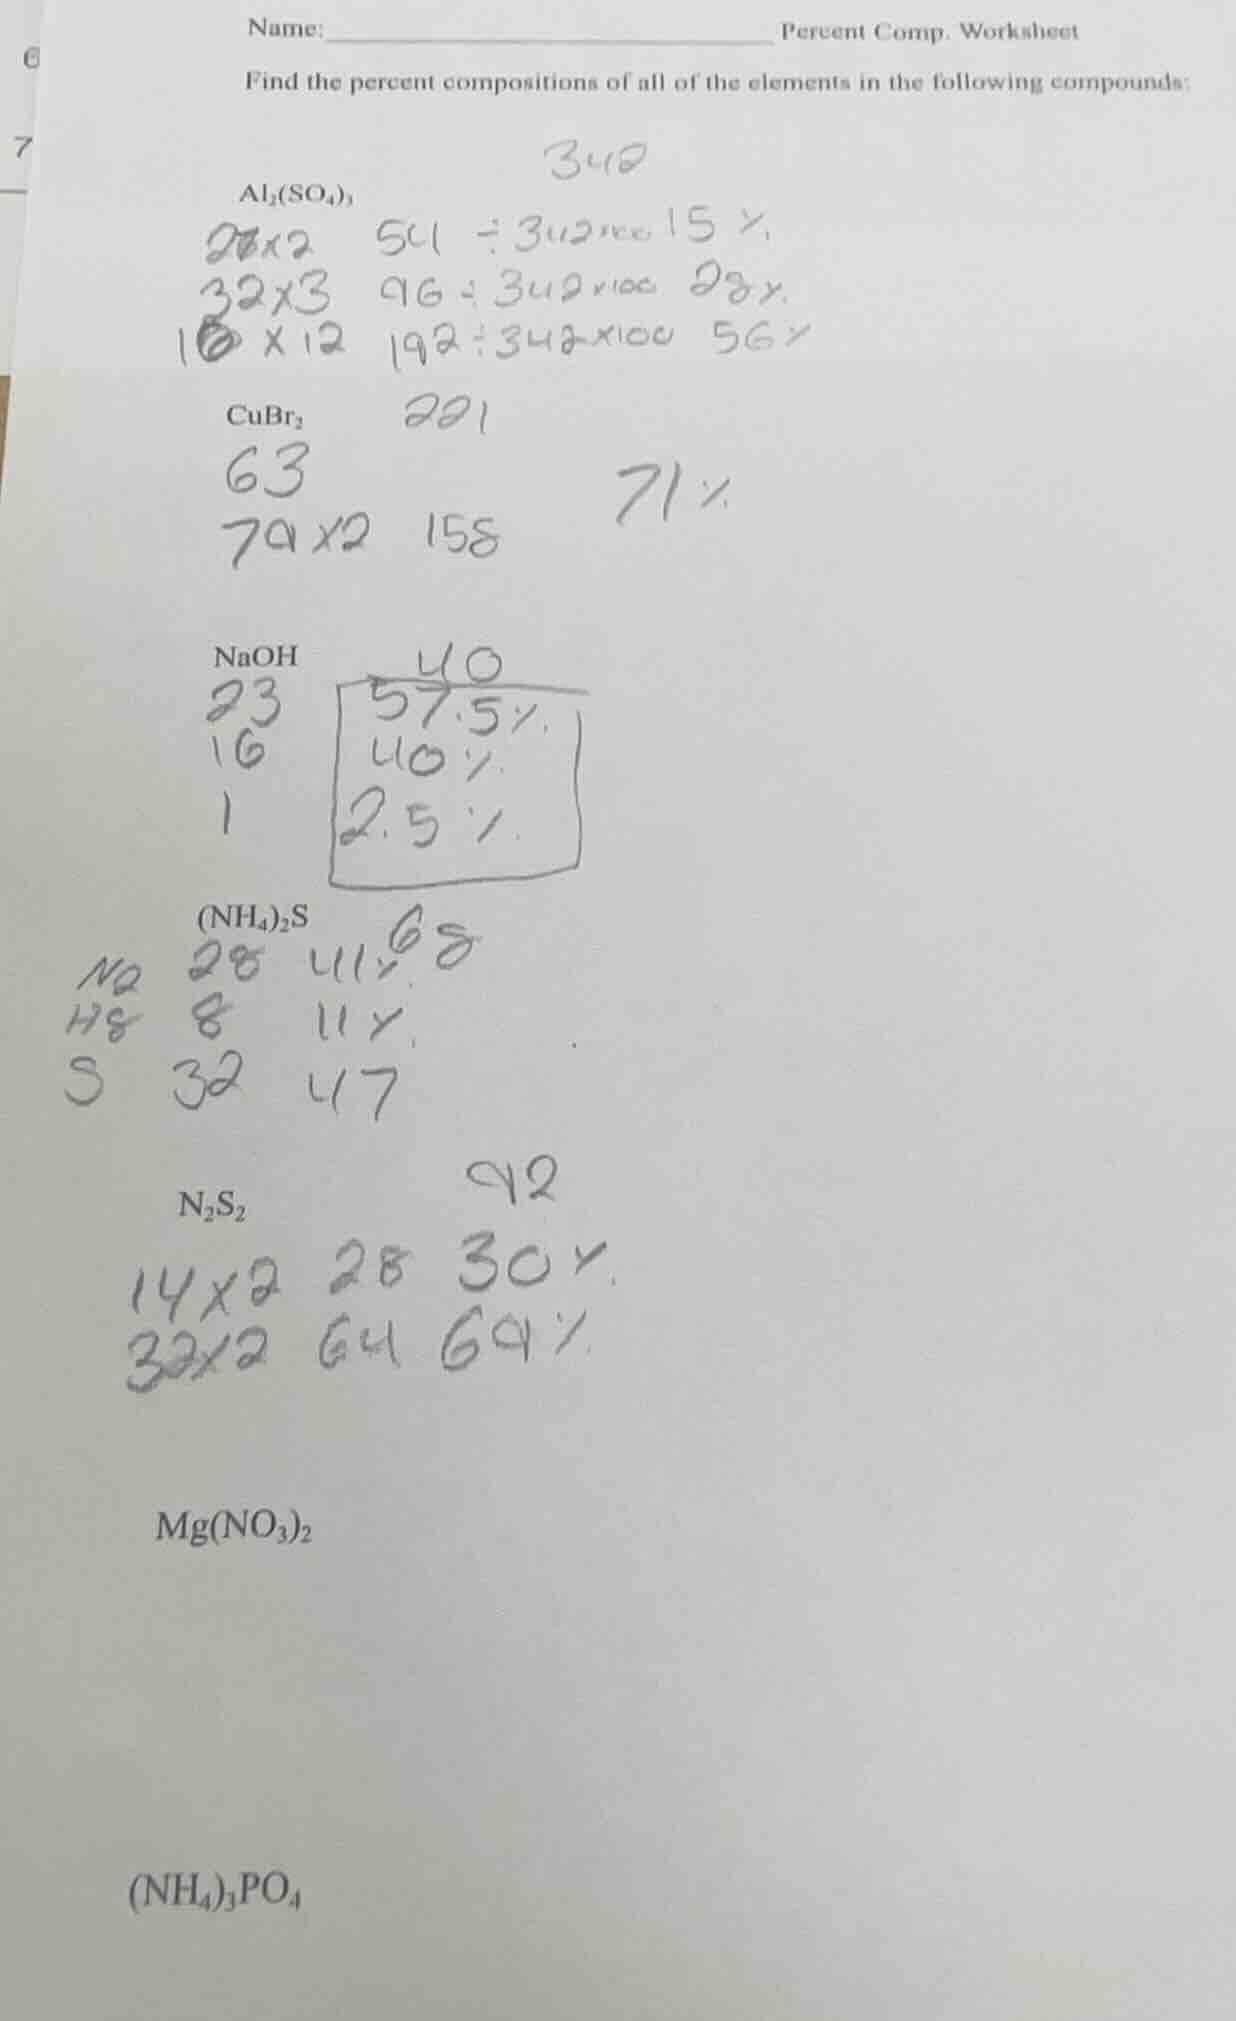 6
7
Name:____________________ Percent Comp. Worksheet
Find the percent compositions of all of the elements in the following compounds:
342
Al₂(SO₄)₃
27x2 54 ÷ 342x100 15 %
32x3 96 ÷ 342x100 28%
16 x 12 192÷342x100 56%
CuBr₂ 221
63
71%
79x2 158
NaOH 40
23 57.5%
16 40%
1 2.5%
(NH₄)₂S 68
N2 28 41%
H8 8 11%
S 32 47
92
N₂S₂
14x2 28 30%
32x2 64 69%
Mg(NO₃)₂
(NH₄)₃PO₄